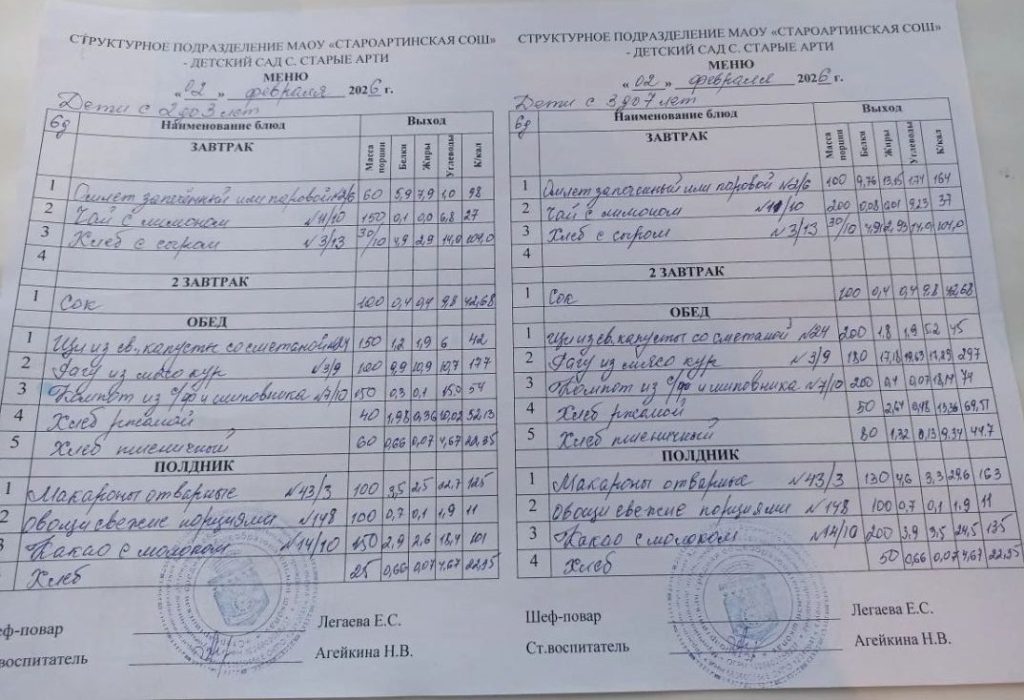 СТРУКТУРНОЕ ПОДРАЗДЕЛЕНИЕ МАОУ «СТАРОАРТИНСКАЯ СОШ»
- ДЕТСКИЙ САД С. СТАРЫЕ АРТИ
МЕНЮ
«02» февраля 2026 г.
Дети с 2 до 3 лет
6д Наименование блюд Выход
ЗАВТРАК Масса порции Белки Жиры Углеводы К/кал
1 Омлет запечённый или паровой №2/6 60 5,9 7,9 1,0 98
2 Чай с лимоном №11/10 150 0,1 0,0 6,8 27
3 Хлеб с сыром №3/13 30/10 4,9 2,9 14,0 104,0
4
2 ЗАВТРАК
1 Сок 100 0,4 0,4 9,8 42,68
ОБЕД
1 Щи из св. капусты со сметаной №24 150 1,2 1,9 6 42
2 Рагу из мясо кур №3/9 100 9,9 10,9 10,7 177
3 Компот из с/ф и шиповника №7/10 150 0,3 0,1 15,0 54
4 Хлеб ржаной 40 1,98 0,36 10,02 52,13
5 Хлеб пшеничный 60 0,66 0,07 4,67 22,35
ПОЛДНИК
1 Макароны отварные №43/3 100 3,5 2,5 22,7 125
2 Овощи свежие порциями №148 100 0,7 0,1 1,9 11
3 Какао с молоком №14/10 150 2,9 2,6 18,4 101
Хлеб 25 0,66 0,07 4,67 22,35
Шеф-повар Легаева Е.С.
Ст.воспитатель Агейкина Н.В.
СТРУКТУРНОЕ ПОДРАЗДЕЛЕНИЕ МАОУ «СТАРОАРТИНСКАЯ СОШ»
- ДЕТСКИЙ САД С. СТАРЫЕ АРТИ
МЕНЮ
«02» февраля 2026 г.
Дети с 3 до 7 лет
6д Наименование блюд Выход
ЗАВТРАК Масса порции Белки Жиры Углеводы К/кал
1 Омлет запечённый или паровой №2/6 100 9,76 13,15 1,71 164
2 Чай с лимоном №11/10 200 0,08 0,01 9,23 37
3 Хлеб с сыром №3/13 30/10 4,91 2,93 14,0 104,0
4
2 ЗАВТРАК
1 Сок 100 0,4 0,4 9,8 42,68
ОБЕД
1 Щи из св. капусты со сметаной №24 200 1,8 1,9 5,2 45
2 Рагу из мясо кур №3/9 180 17,18 17,29 297
3 Компот из с/ф и шиповника №7/10 200 0,4 0,07 18,14 74
4 Хлеб ржаной 50 2,64 0,48 13,36 69,51
5 Хлеб пшеничный 80 1,32 0,13 9,34 44,7
ПОЛДНИК
1 Макароны отварные №43/3 130 4,6 3,3 29,6 163
2 Овощи свежие порциями №148 100 0,7 0,1 1,9 11
3 Какао с молоком №14/10 200 3,9 3,5 24,5 135
4 Хлеб 50 0,66 0,07 4,67 22,35
Шеф-повар Легаева Е.С.
Ст.воспитатель Агейкина Н.В.